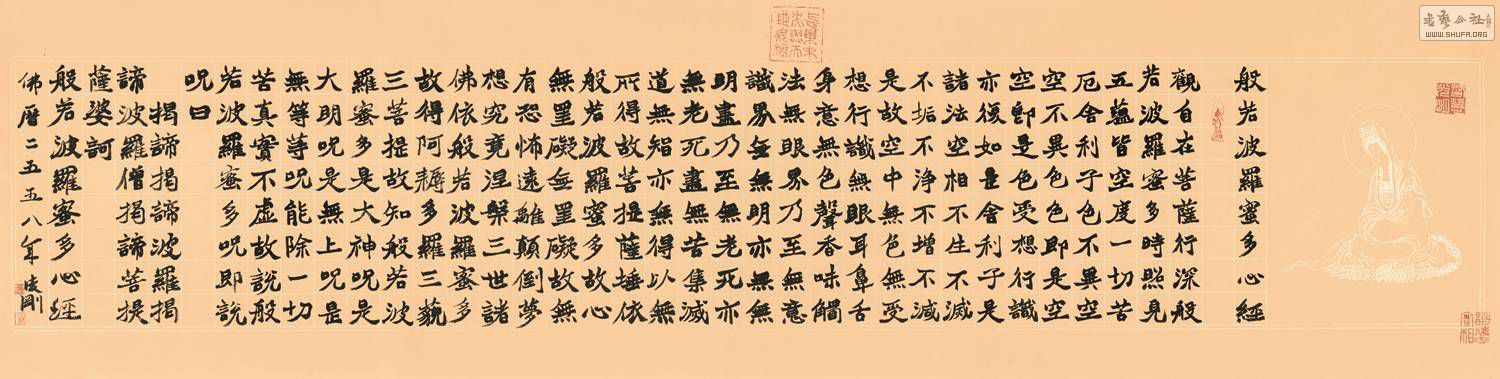 般若波羅蜜多心經
觀自在菩薩行深般
若波羅蜜多時照見
五蘊皆空度一切苦
厄舍利子色不異空
空不異色色即是空
空即是色受想行識
亦復如是舍利子是
諸法空相不生不滅
不垢不淨不增不減
是故空中無色無受
想行識無眼耳鼻舌
身意無色聲香味觸
法無眼界乃至無意
識界無無明亦無無
明盡乃至無老死亦
無老死盡無苦集滅
道無智亦無得以無
所得故菩提薩埵依
般若波羅蜜多故心
無罣礙無罣礙故無
有恐怖遠離顛倒夢
想究竟涅槃三世諸
佛依般若波羅蜜多
故得阿耨多羅三藐
三菩提故知般若波
羅蜜多是大神呪是
大明呪是無上呪是
無等等呪能除一切
苦真實不虛故說般
若波羅蜜多呪即說
呪曰
揭諦揭諦波羅揭
諦波羅僧揭諦菩提
薩婆訶
般若波羅蜜多心經
佛曆二五五八年剛
WWW.SHUFA.ORG